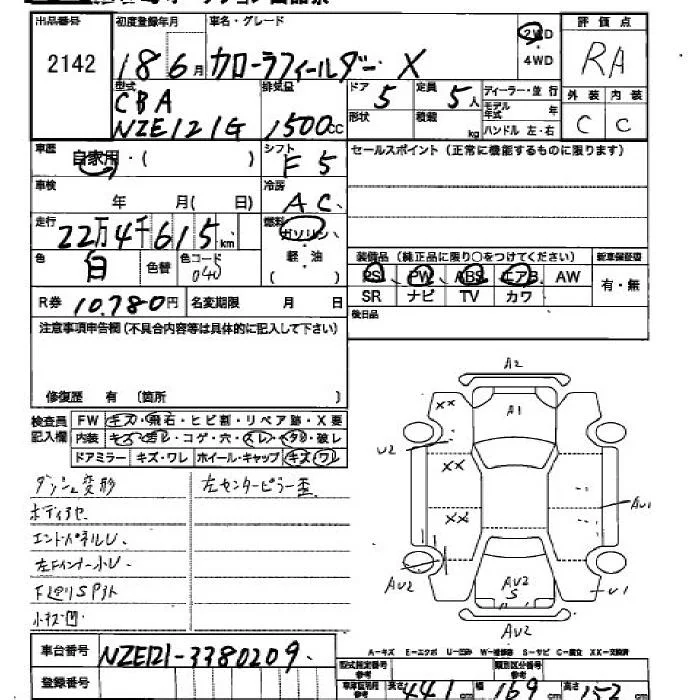 出品番号 初度登録年月 車名・グレード 評価点
2142 18 6月 カローラフィールダー X 2WD・4WD RA
型式 排気量 ドア 定員 ディーラー・並行 外装 内装
CBA NZE121G 1500cc 5 5人 モデル年式 年 C C
形状 積載 kg ハンドル 左・右
車歴 自家用・( ) シフト F5 セールスポイント(正常に機能するものに限ります)
車検 年 月( 日) 冷房 AC
走行 22万4千615km 燃料 ガソリン・軽油 ( )
色 白 色替 色コード 040 装備品(純正品に限り○をつけてください) 新車保証書
PS PW ABS エアB AW 有・無
SR ナビ TV カワ
R券 10.780円 名変期限 月 日 後日品
注意事項申告欄(不具合内容等は具体的に記入して下さい)
修復歴 有 (箇所 )
検査員記入欄 FW キズ・飛石・ヒビ割・リペア跡・X要
内装 キズ・汚レ・コゲ・穴・スレ・ヘタレ・破レ
ドアミラー キズ・ワレ ホイール・キャップ キズ・ワレ
ダッシュ変形 左センターピラー歪
ボディサビ
エンドパネルU
左Fインナー小U
小キズ凹
A2
A1
XX
U2
XX
XX
AU1
AU2
AU2
S
U1
AU2
A-キズ E-エクボ U-凹み W-補修跡 S-サビ C-腐食 XX-交換済
車台番号 NZE121-3380209
登録番号
型式指定番号 類別区分番号
長さ 441cm 幅 169cm 高さ 152cm